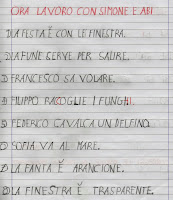 ORA LAVORO CON SIMONE E ABI
1) LA FESTA È CON LE FINESTRA.
2) LA FUNE SERVE PER SALIRE.
3) FRANCESCO SA VOLARE.
4) FILIPPO RACCOGLIE I FUNGHI.
5) FEDERICO CAVALCA UN DELFINO.
6) SOFIA VA AL MARE.
7) LA FANTA È ARANCIONE.
8) LA FINESTRA È TRASPARENTE.